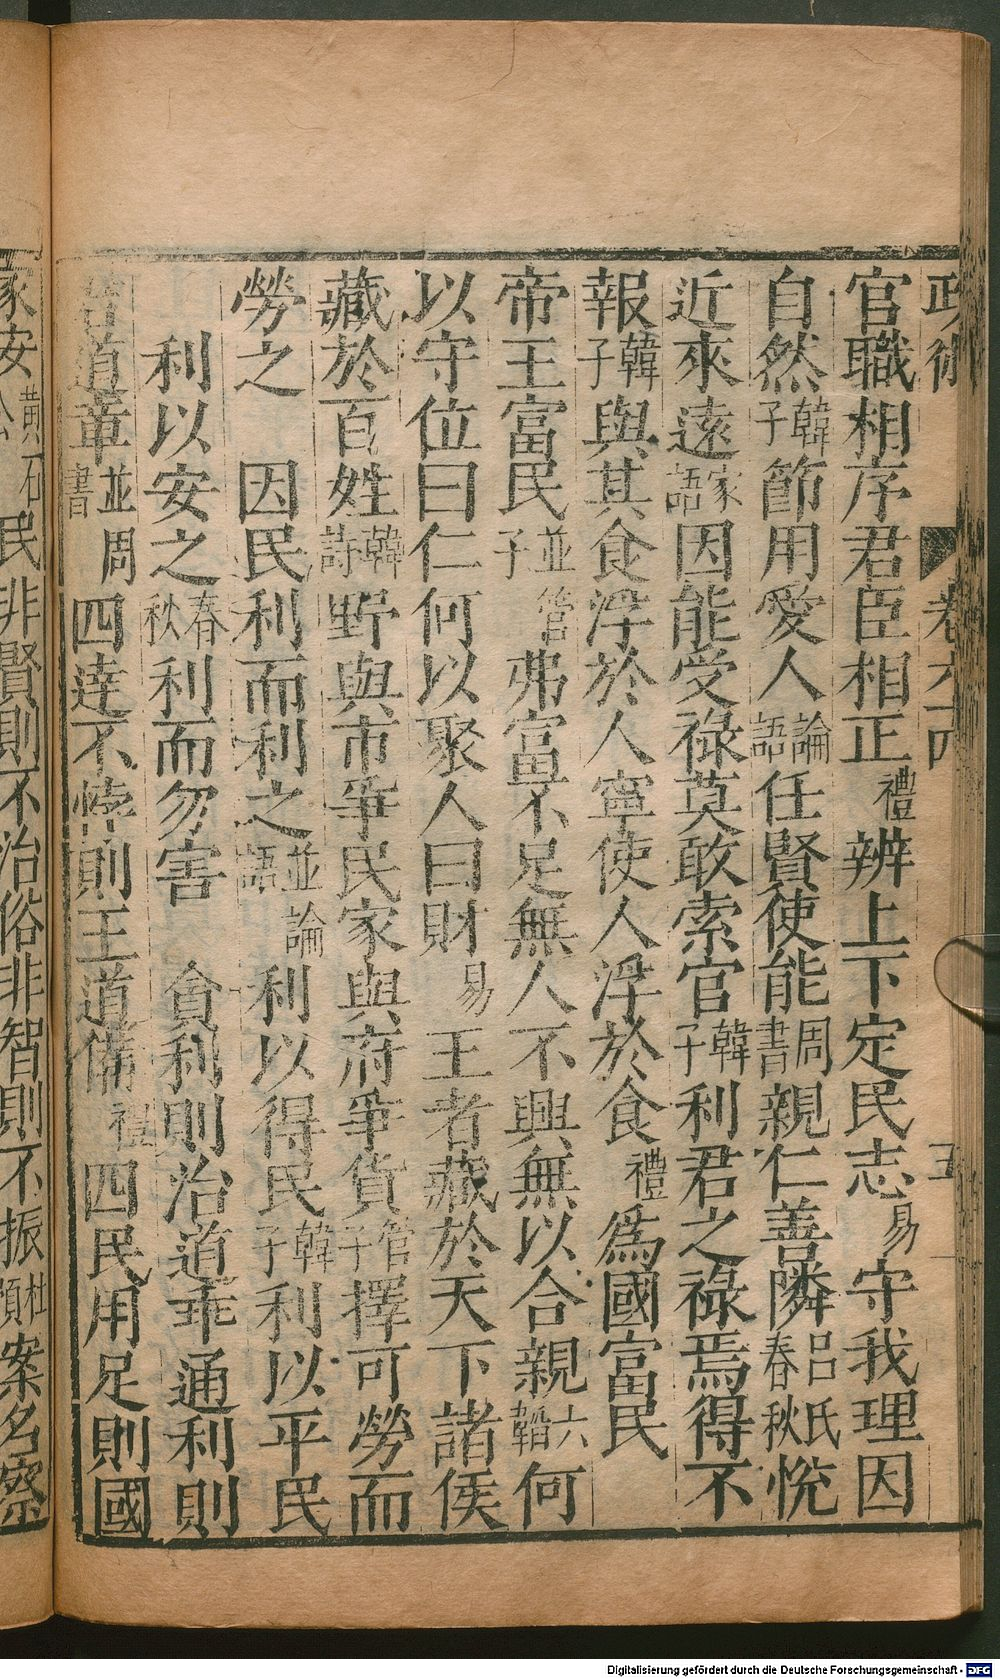 政術 卷六十四 五
官職相序君臣相正禮辨上下定民志易守我理因
自然韓子節用愛人論語任賢使能周書親仁善隣呂氏春秋悅
近來遠家語因能受祿莫敢索官韓子利君之祿焉得不
報韓子與其食浮於人寧使人浮於食禮爲國富民
帝王富民並管子弗富不足無人不興無以合親六韜何
以守位曰仁何以聚人曰財易王者藏於天下諸侯
藏於百姓韓詩野與市爭民家與府爭貨管子擇可勞而
勞之 因民利而利之並論語利以得民韓子利以平民
利以安之春秋利而勿害 貪利則治道乖通利則
道章並周書四達不悖則王道備禮四民用足則國
家安黃石公民非賢則不治俗非智則不振杜案名察
Digitalisierung gefördert durch die Deutsche Forschungsgemeinschaft - DFG